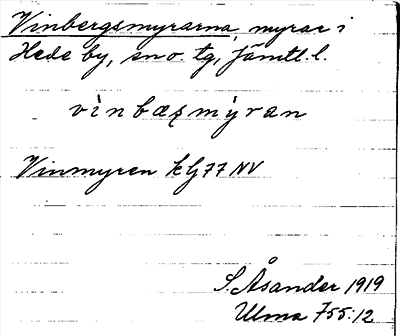 Vinbergsmyrarna, myrar i
Hede by, sn o. tg, Jämtl. l.
vìnbæșmýran
Vinmyren kG77NV
S. Åsander 1919
Ulma 755:12